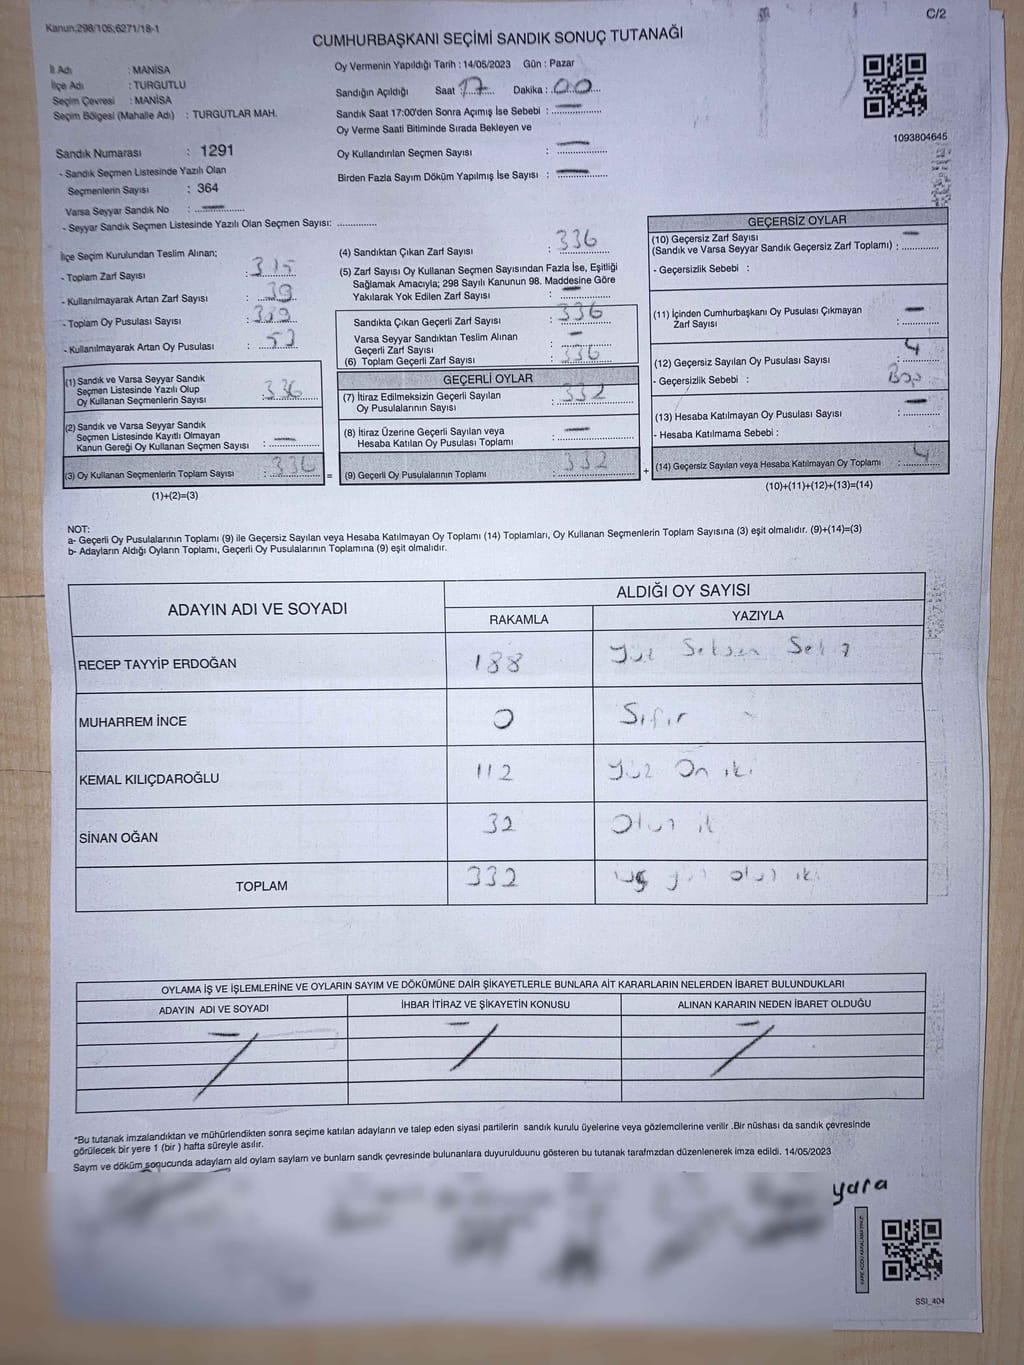 Kanun:298/105;6271/18-1
C/2
CUMHURBAŞKANI SEÇİMİ SANDIK SONUÇ TUTANAĞI
İl Adı : MANİSA
İlçe Adı : TURGUTLU
Seçim Çevresi : MANİSA
Seçim Bölgesi (Mahalle Adı) : TURGUTLAR MAH.
Oy Vermenin Yapıldığı Tarih : 14/05/2023 Gün : Pazar
Sandığın Açıldığı Saat 17 Dakika : 00
Sandık Saat 17:00'den Sonra Açımış İse Sebebi : —
Oy Verme Saati Bitiminde Sırada Bekleyen ve
Oy Kullandırılan Seçmen Sayısı : —
Birden Fazla Sayım Döküm Yapılmış İse Sayısı : —
1093804645
Sandık Numarası : 1291
- Sandık Seçmen Listesinde Yazılı Olan
Seçmenlerin Sayısı : 364
Varsa Seyyar Sandık No : —
- Seyyar Sandık Seçmen Listesinde Yazılı Olan Seçmen Sayısı: ..............
İlçe Seçim Kurulundan Teslim Alınan;
- Toplam Zarf Sayısı :
- Kullanılmayarak Artan Zarf Sayısı : 39
- Toplam Oy Pusulası Sayısı :
- Kullanılmayarak Artan Oy Pusulası :
(1) Sandık ve Varsa Seyyar Sandık
Seçmen Listesinde Yazılı Olup
Oy Kullanan Seçmenlerin Sayısı : 336
(2) Sandık ve Varsa Seyyar Sandık
Seçmen Listesinde Kayıtlı Olmayan
Kanun Gereği Oy Kullanan Seçmen Sayısı : —
(3) Oy Kullanan Seçmenlerin Toplam Sayısı : 336
(1)+(2)=(3)
(4) Sandıktan Çıkan Zarf Sayısı : 336
(5) Zarf Sayısı Oy Kullanan Seçmen Sayısından Fazla İse, Eşitliği
Sağlamak Amacıyla; 298 Sayılı Kanunun 98. Maddesine Göre
Yakılarak Yok Edilen Zarf Sayısı : —
Sandıkta Çıkan Geçerli Zarf Sayısı : 336
Varsa Seyyar Sandıktan Teslim Alınan
Geçerli Zarf Sayısı : —
(6) Toplam Geçerli Zarf Sayısı : 336
GEÇERLİ OYLAR
(7) İtiraz Edilmeksizin Geçerli Sayılan
Oy Pusulalarının Sayısı : 332
(8) İtiraz Üzerine Geçerli Sayılan veya
Hesaba Katılan Oy Pusulası Toplamı : —
= (9) Geçerli Oy Pusulalarının Toplamı : 332
GEÇERSİZ OYLAR
(10) Geçersiz Zarf Sayısı
(Sandık ve Varsa Seyyar Sandık Geçersiz Zarf Toplamı) : —
- Geçersizlik Sebebi :
(11) İçinden Cumhurbaşkanı Oy Pusulası Çıkmayan
Zarf Sayısı : —
(12) Geçersiz Sayılan Oy Pusulası Sayısı : 4
- Geçersizlik Sebebi :
(13) Hesaba Katılmayan Oy Pusulası Sayısı : —
- Hesaba Katılmama Sebebi :
+ (14) Geçersiz Sayılan veya Hesaba Katılmayan Oy Toplamı : 4
(10)+(11)+(12)+(13)=(14)
NOT:
a- Geçerli Oy Pusulalarının Toplamı (9) ile Geçersiz Sayılan veya Hesaba Katılmayan Oy Toplamı (14) Toplamları, Oy Kullanan Seçmenlerin Toplam Sayısına (3) eşit olmalıdır. (9)+(14)=(3)
b- Adayların Aldığı Oyların Toplamı, Geçerli Oy Pusulalarının Toplamına (9) eşit olmalıdır.
ADAYIN ADI VE SOYADI
ALDIĞI OY SAYISI
RAKAMLA YAZIYLA
RECEP TAYYİP ERDOĞAN 188 Yüz Seksen
MUHARREM İNCE 0 Sıfır
KEMAL KILIÇDAROĞLU 112 Yüz On iki
SİNAN OĞAN 32 Otuz
TOPLAM 332 üç yüz otuz iki
OYLAMA İŞ VE İŞLEMLERİNE VE OYLARIN SAYIM VE DÖKÜMÜNE DAİR ŞİKAYETLERLE BUNLARA AİT KARARLARIN NELERDEN İBARET BULUNDUKLARI
ADAYIN ADI VE SOYADI İHBAR İTİRAZ VE ŞİKAYETİN KONUSU ALINAN KARARIN NEDEN İBARET OLDUĞU
*Bu tutanak imzalandıktan ve mühürlendikten sonra seçime katılan adayların ve talep eden siyasi partilerin sandık kurulu üyelerine veya gözlemcilerine verilir .Bir nüshası da sandık çevresinde
görülecek bir yere 1 (bir ) hafta süreyle asılır.
Sayım ve döküm sonucunda adaylam ald oylam saylam ve bunlarn sandk çevresinde bulunanlara duyurulduunu gösteren bu tutanak tarafmzdan düzenlenerek imza edildi. 14/05/2023
yara
SSI_404